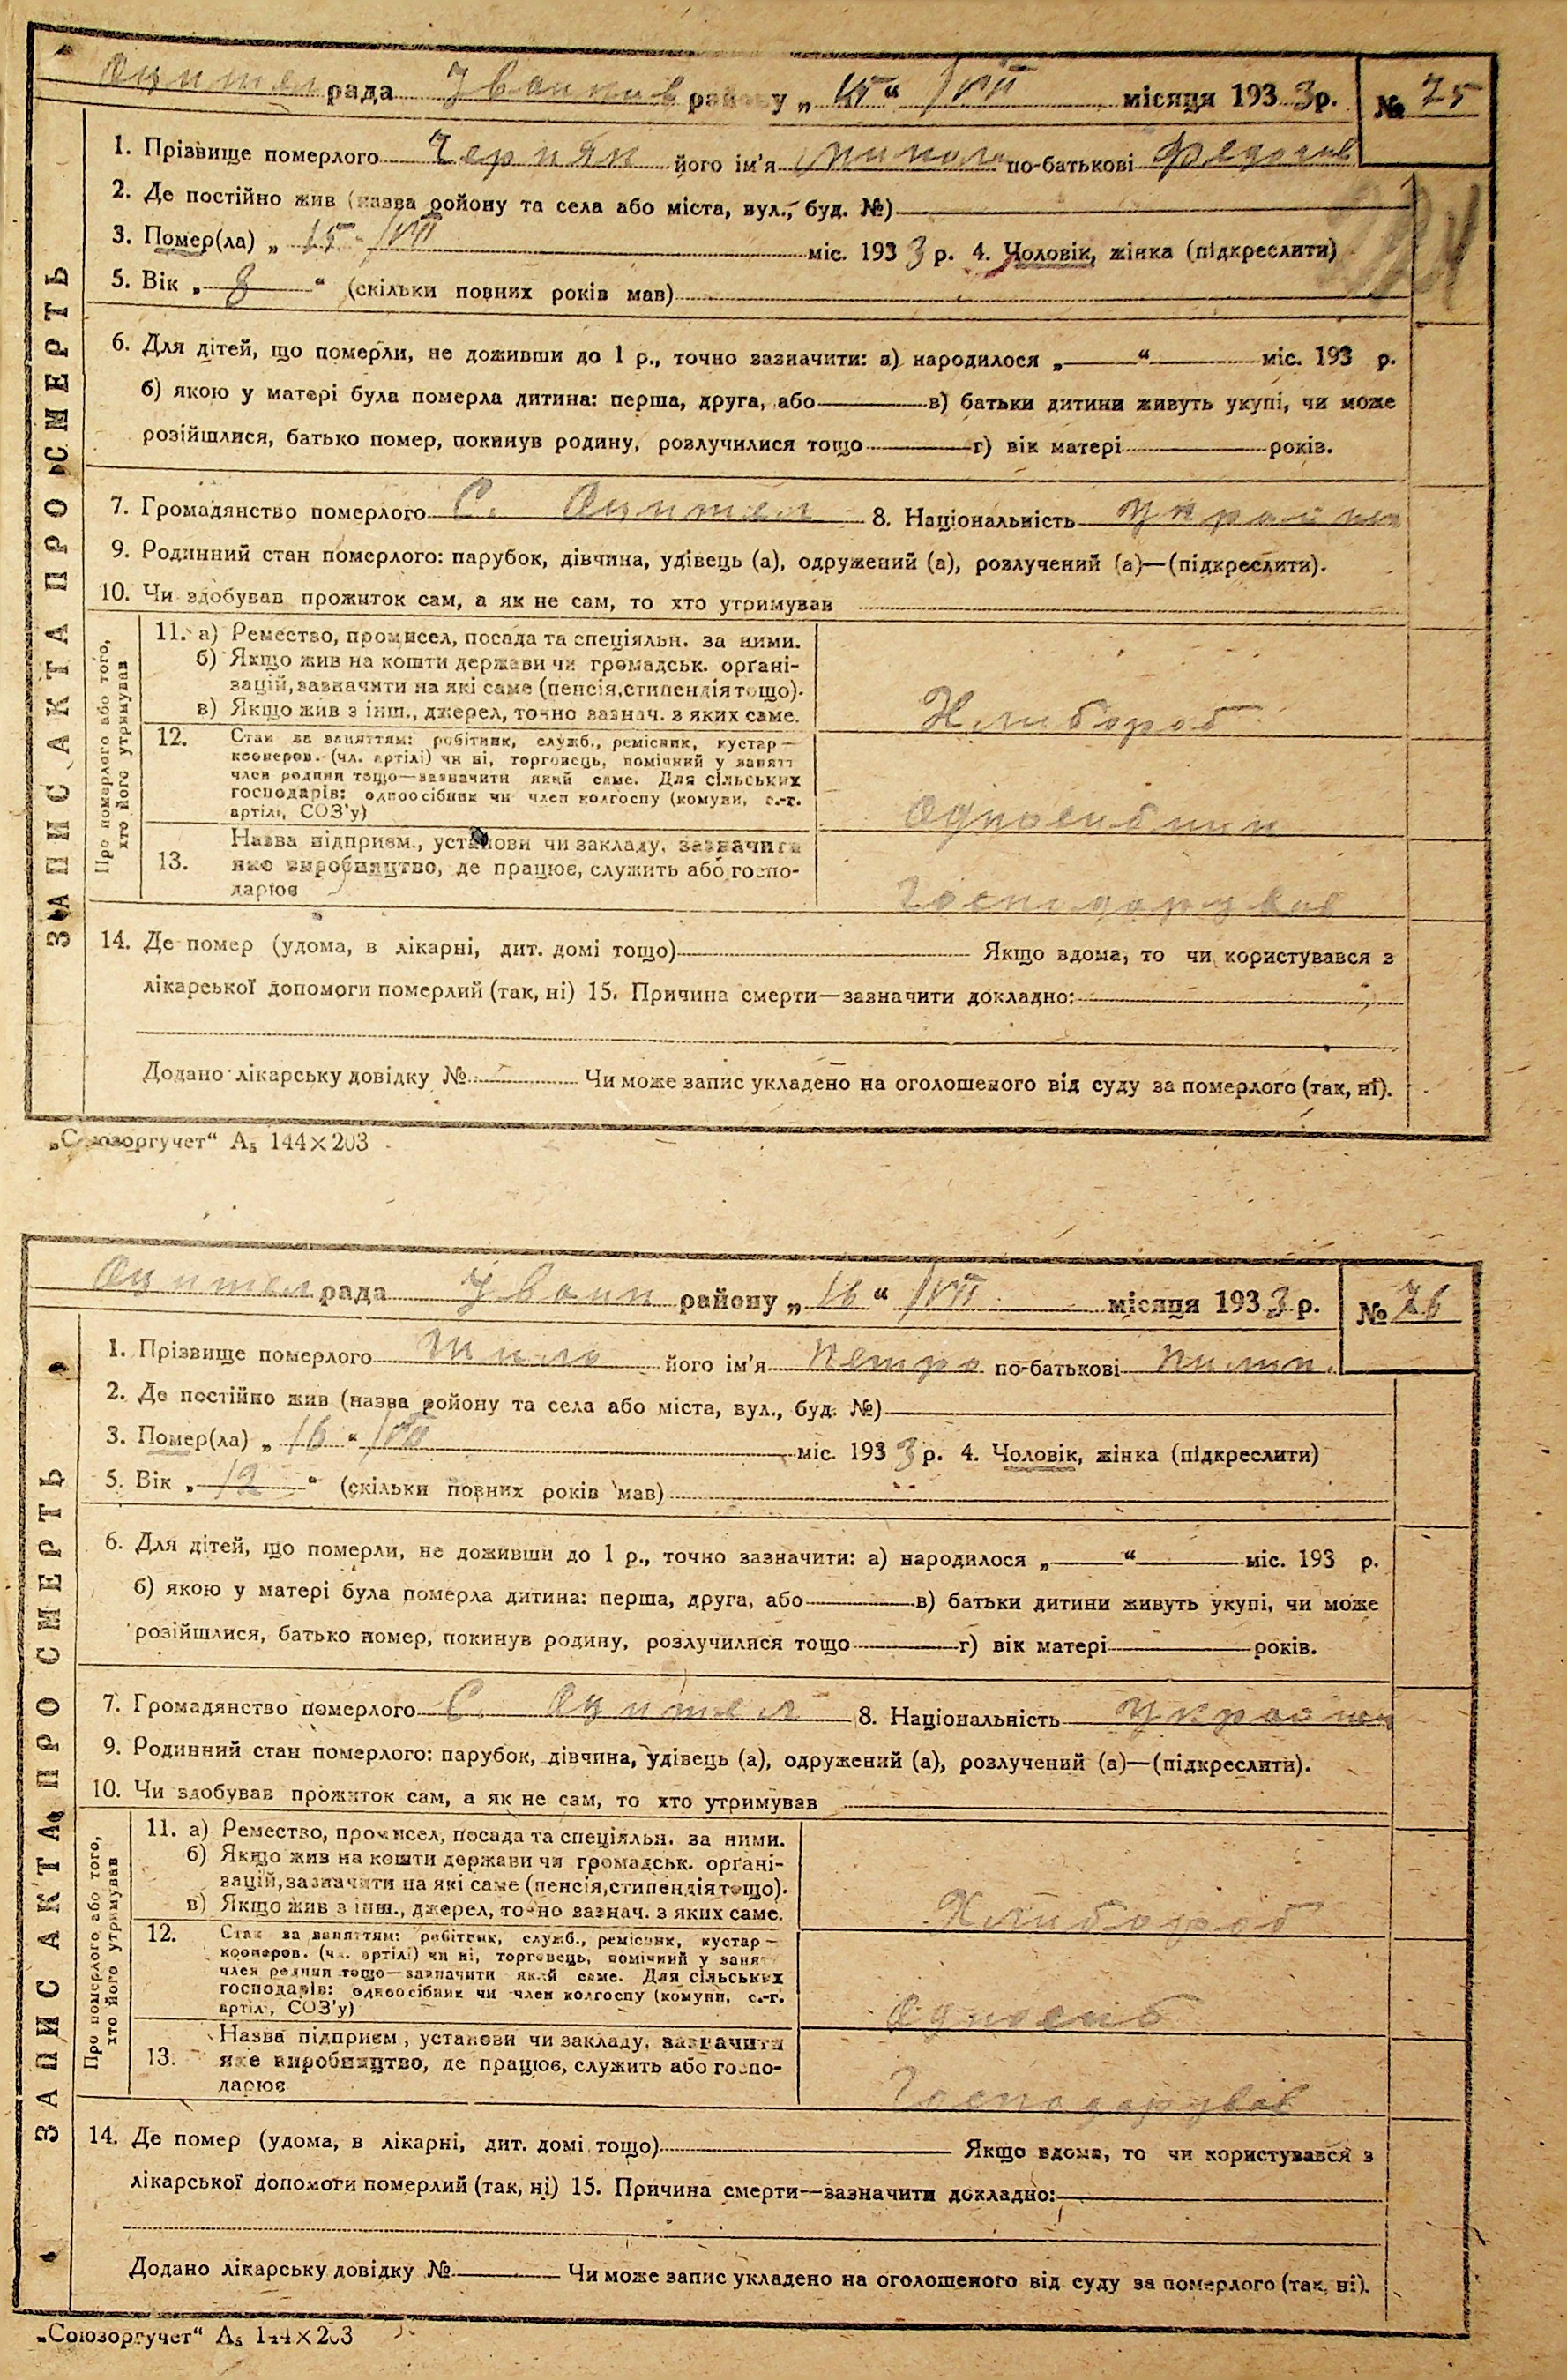 Оцител рада Іванків району „ 15 “ /VII місяця 193 3 р. № 75
ЗАПИС АКТА ПРО СМЕРТЬ
1. Прізвище померлого Черняк його ім'я Микола по-батькові Федоров
2. Де постійно жив (назва ройону та села або міста, вул., буд. №)
3. Помер(ла) „ 15 “ /VII міс. 193 3 р. 4. Чоловік, жінка (підкреслити)
5. Вік „ 8 “ (скільки повних років мав)
6. Для дітей, що померли, не доживши до 1 р., точно зазначити: а) народилося „ “ міс. 193 р.
б) якою у матері була померла дитина: перша, друга, або в) батьки дитини живуть укупі, чи може
розійшлися, батько помер, покинув родину, розлучилися тощо г) вік матері років.
7. Громадянство померлого С. Оцител 8. Національність Україн
9. Родинний стан померлого: парубок, дівчина, удівець (а), одружений (а), розлучений (а)—(підкреслити).
10. Чи здобував прожиток сам, а як не сам, то хто утримував
Про померлого або того,
хто його утримував
11. а) Ремество, промисел, посада та спеціяльн. за ними.
б) Якщо жив на кошти держави чи громадськ. орґані-
зацій, зазначити на які саме (пенсія, стипендія тощо).
в) Якщо жив з інш., джерел, точно зазнач. з яких саме.
Хлибороб
12. Стан за заняттям: робітник, служб., ремісник, кустар—
кооперов. (чл. артілі) чи ні, торговець, помічний у занятт
член родини тощо—зазначити який саме. Для сільських
господарів: одноосібник чи член колгоспу (комуни, с.-г.
артілі, СОЗ'у)
Односибник
13. Назва підприєм., установи чи закладу, зазначити
яке виробництво, де працює, служить або госпо-
дарює
Господарував
14. Де помер (удома, в лікарні, дит. домі тощо) Якщо вдома, то чи користувався з
лікарської допомоги померлий (так, ні) 15. Причина смерти—зазначити докладно:
Додано лікарську довідку № Чи може запис укладено на оголошеного від суду за померлого (так, ні).
„Союзоргучет“ А₅ 144×203
Оцител рада Іванк району „ 16 “ /VII місяця 193 3 р. № 76
ЗАПИС АКТА ПРО СМЕРТЬ
1. Прізвище померлого Шило його ім'я Петро по-батькові Пилип.
2. Де постійно жив (назва ройону та села або міста, вул., буд. №)
3. Помер(ла) „ 16 “ /VII міс. 193 3 р. 4. Чоловік, жінка (підкреслити)
5. Вік „ 12 “ (скільки повних років мав)
6. Для дітей, що померли, не доживши до 1 р., точно зазначити: а) народилося „ “ міс. 193 р.
б) якою у матері була померла дитина: перша, друга, або в) батьки дитини живуть укупі, чи може
розійшлися, батько помер, покинув родину, розлучилися тощо г) вік матері років.
7. Громадянство померлого С. Оцител 8. Національність Україн
9. Родинний стан померлого: парубок, дівчина, удівець (а), одружений (а), розлучений (а)—(підкреслити).
10. Чи здобував прожиток сам, а як не сам, то хто утримував
Про померлого або того,
хто його утримував
11. а) Ремество, промисел, посада та спеціяльн. за ними.
б) Якщо жив на кошти держави чи громадськ. орґані-
зацій, зазначити на які саме (пенсія, стипендія тощо).
в) Якщо жив з інш., джерел, точно зазнач. з яких саме.
Хлибороб
12. Стан за заняттям: робітник, служб., ремісник, кустар—
кооперов. (чл. артілі) чи ні, торговець, помічний у занят
член родини тощо—зазначити який саме. Для сільських
господарів: одноосібник чи член колгоспу (комуни, с.-г.
артілі, СОЗ'у)
Односиб
13. Назва підприєм., установи чи закладу, зазначити
яке виробництво, де працює, служить або госпо-
дарює
Господарував
14. Де помер (удома, в лікарні, дит. домі тощо) Якщо вдома, то чи користувався з
лікарської допомоги померлий (так, ні) 15. Причина смерти—зазначити докладно:
Додано лікарську довідку № Чи може запис укладено на оголошеного від суду за померлого (так, ні).
„Союзоргучет“ А₅ 144×203